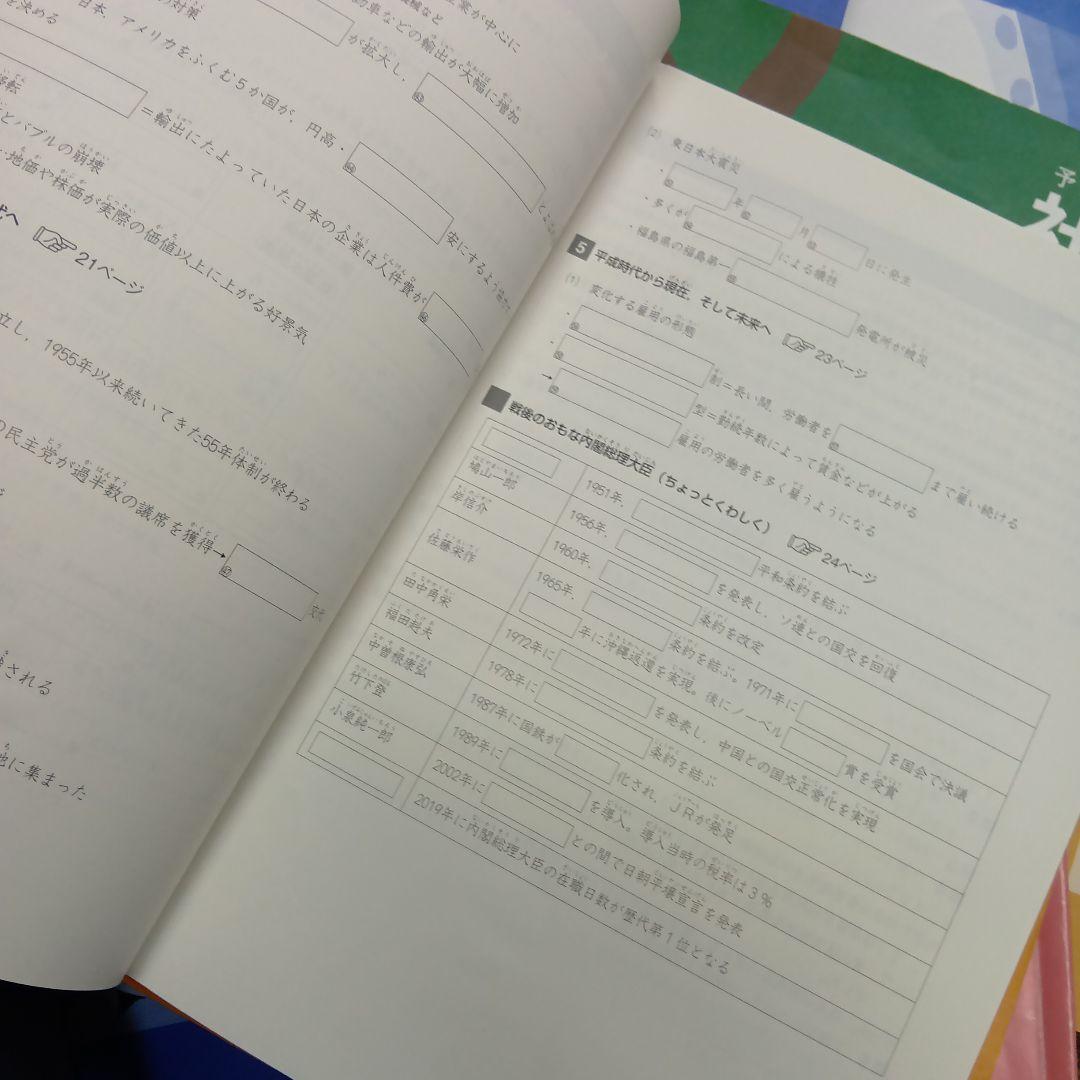 を決める
の対策
日本、アメリカをふくむ5か国が、円高・
安にするよう
が拡大し、
動車などの輸出が大幅に増加
業が中心に
移転
＝輸出にたよっていた日本の企業は人件費が
とバブルの崩壊
地価や株価が実際の価値以上に上がる好景気
21ページ
立し、1955年以来続いてきた55年体制が終わる
の民主党が過半数の議席を獲得→
される
地に集まった
(2) 東日本大震災
・ 年 月 日に発生
・多くが による犠牲
・福島県の福島第一 発電所が被災
5 平成時代から現在、そして未来へ 23ページ
(1) 変化する雇用の形態
・ 制＝長い間、労働者を まで雇い続ける
・ 型＝勤続年数によって賃金などが上がる
→ 雇用の労働者を多く雇うようになる
戦後のおもな内閣総理大臣（ちょっとくわしく） 24ページ
1951年、 平和条約を結ぶ
鳩山一郎 1956年、 を発表し、ソ連との国交を回復
岸信介 1960年、 条約を改定
佐藤栄作 1965年、 条約を結ぶ。1971年に を国会で決議
年に沖縄返還を実現。後にノーベル 賞を受賞
田中角栄 1972年に を発表し、中国との国交正常化を実現
福田赳夫 1978年に 条約を結ぶ
中曽根康弘 1987年に国鉄が 化され、ＪＲが発足
竹下登 1989年に を導入。導入当時の税率は３％
小泉純一郎 2002年に との間で日朝平壌宣言を発表
2019年に内閣総理大臣の在職日数が歴代第１位となる
予